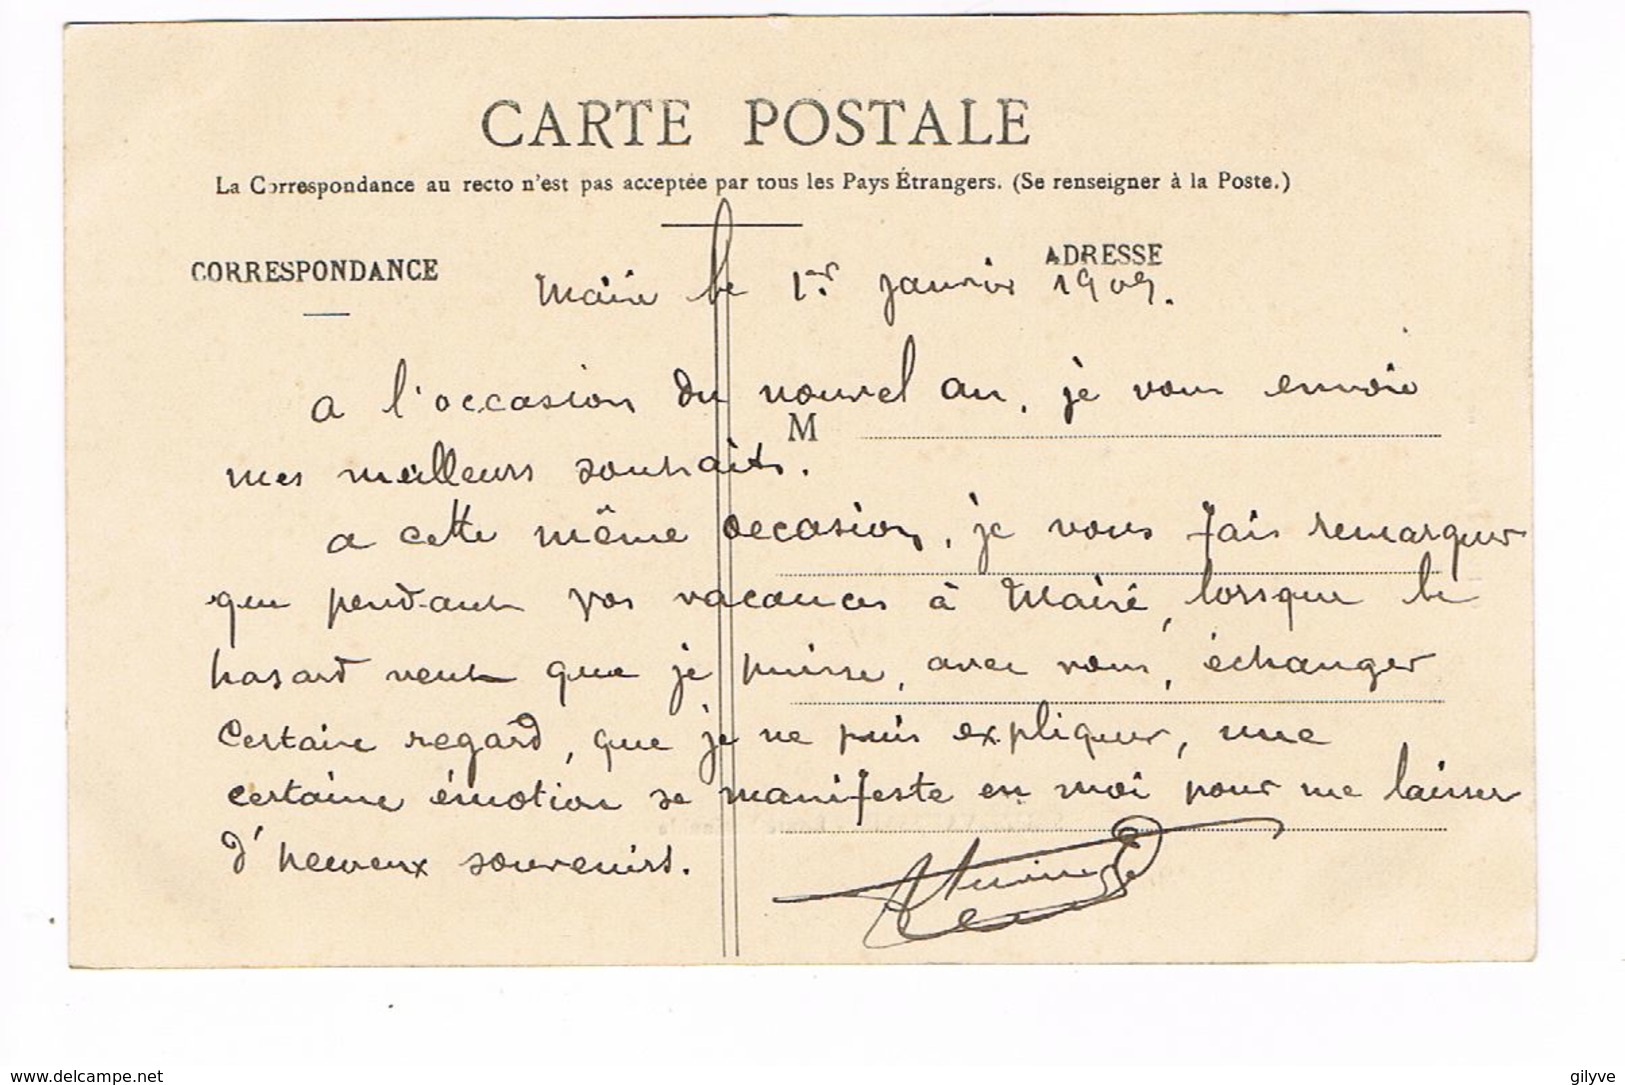 CARTE POSTALE
La Correspondance au recto n'est pas acceptée par tous les Pays Étrangers. (Se renseigner à la Poste.)
CORRESPONDANCE
ADRESSE
Mairé le 1er janvier 1909.
a l'occasion du nouvel an, je vous envoie
M
mes meilleurs souhaits.
a cette même occasion, je vous fais remarquer
que pendant vos vacances à Mairé, lorsque le
hasard veut que je puisse, avec vous, échanger
certain regard, que je ne puis expliquer, une
certaine émotion se manifeste en moi pour me laisser
d'heureux souvenirs.
www.delcampe.net
gilyve